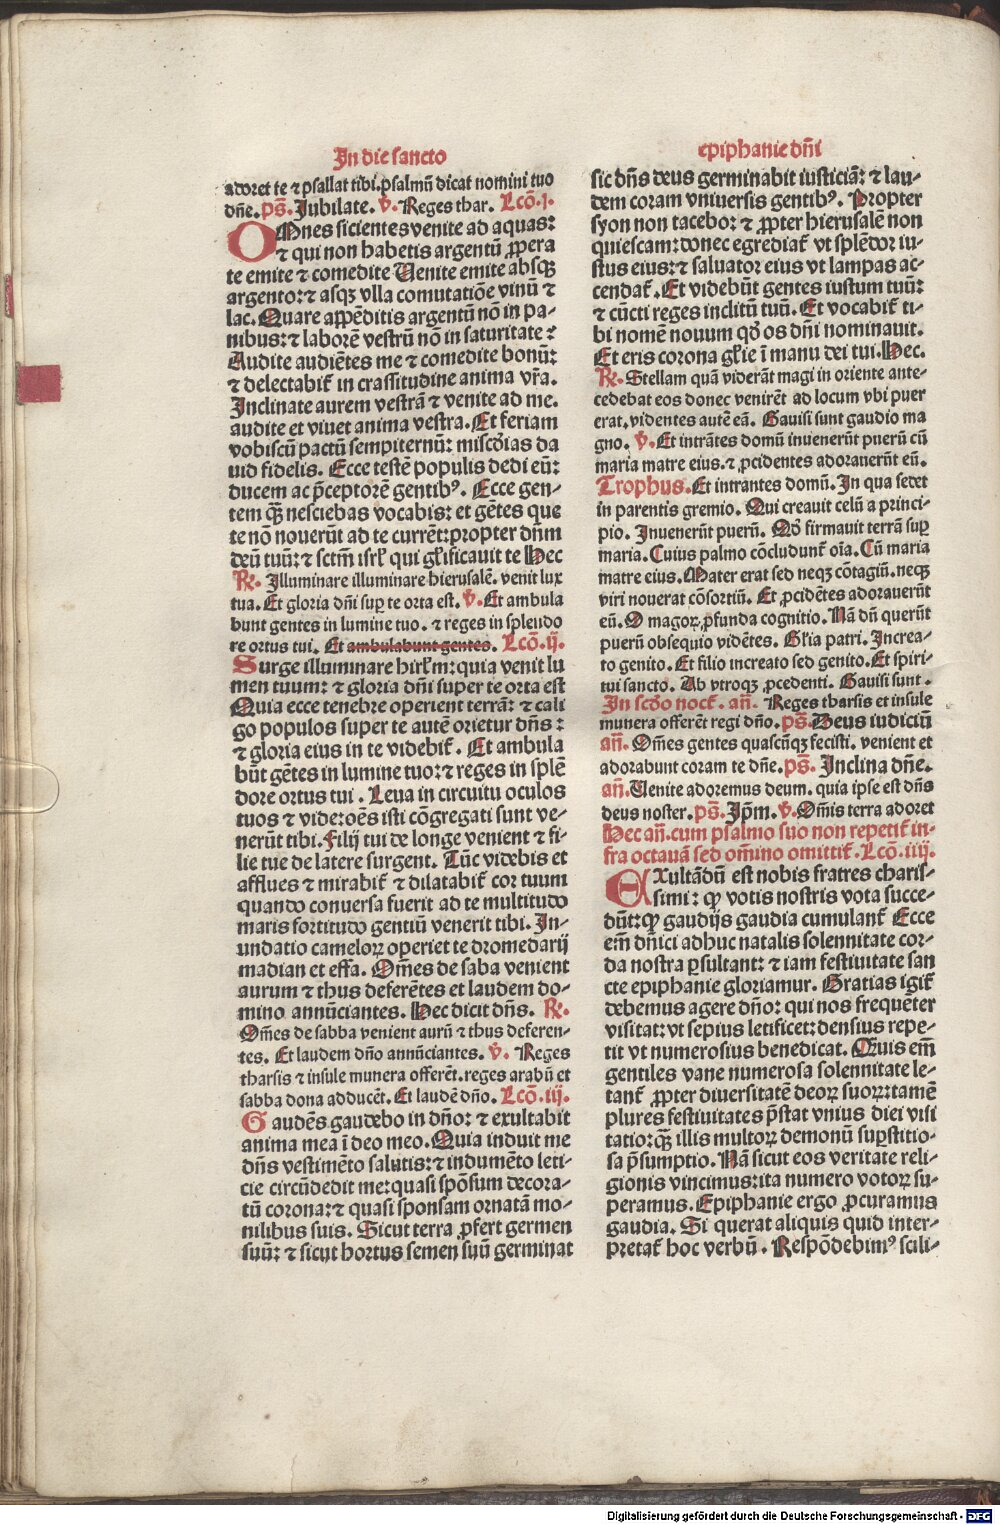 In die sancto
adoret te ⁊ psallat tibi. psalmū dicat nomini tuo
dn̄e. ps̄. Jubilate. v̄. Reges thar. Lcō. j.
OMnes sicientes venite ad aquas:
⁊ qui non habetis argentū ꝓpera
te emite ⁊ comedite Uenite emite absqꝫ
argento: ⁊ asqꝫ vlla comutatiōe vinū ⁊
lac. Quare appēditis argentū nō in pa-
nibus: ⁊ laborē vestrū nō in saturitate:
Audite audiētes me ⁊ comedite bonū:
⁊ delectabit̄ in crassitudine anima vr̄a.
Inclinate aurem vestrā ⁊ venite ad me.
audite et viuet anima vestra. Et feriam
vobiscū pactū sempiternū: miscōias da
uid fidelis. Ecce testē populis dedi eū:
ducem ac p̄ceptorē gentibꝰ. Ecce gen-
tem quā nesciebas vocabis: et gētes que
te nō nouerūt ad te current: propter dn̄m
deū tuū: ⁊ sctm̄ isrl̄ qui gl̄ificauit te Hec
R̄. Illuminare illuminare hierusalē. venit lux
tua. Et gloria dn̄i suꝑ te orta est. v̄. Et ambula
bunt gentes in lumine tuo. ⁊ reges in splendo
re ortus tui. Et ambulabunt gentes. Lcō. ij.
Surge illuminare hirlm̄: quia venit lu
men tuum: ⁊ gloria dn̄i super te orta est
Quia ecce tenebre operient terrā: ⁊ cali
go populos super te autē orietur dn̄s:
⁊ gloria eius in te videbit̄. Et ambula
būt gētes in lumine tuo: ⁊ reges in splē
dore ortus tui. Leua in circuitu oculos
tuos ⁊ vide: oēs isti cōgregati sunt ve-
nerūt tibi. Filij tui de longe venient ⁊ fi-
lie tue de latere surgent. Tūc videbis et
afflues ⁊ mirabit̄ ⁊ dilatabit̄ cor tuum
quando conuersa fuerit ad te multitudo
maris fortitudo gentiū venerit tibi. In-
undatio cameloꝝ operiet te dromedarij
madian et effa. Om̄es de saba venient
aurum ⁊ thus deferētes et laudem do-
mino annūciantes. Hec dicit dn̄s. R̄.
Om̄es de sabba venient aurū ⁊ thus deferen-
tes. Et laudem dn̄o annūciantes. v̄. Reges
tharsis ⁊ insule munera offerēt. reges arabū et
sabba dona adducēt. Et laudē dn̄o. Lcō. iij.
Gaudēs gaudebo in dn̄o: ⁊ exultabit
anima mea ī deo meo. Quia induit me
dn̄s vestimēto salutis: ⁊ indumēto leti-
cie circūdedit me: quasi spōsum decora-
tū corona: ⁊ quasi sponsam ornatā mo-
nilibus suis. Sicut terra ꝓfert germen
suū: ⁊ sicut hortus semen suū germinat
epiphanie dn̄i
sic dn̄s deus germinabit iusticiā: ⁊ lau-
dem coram vniuersis gentibꝰ. Propter
syon non tacebo: ⁊ ꝓpter hierusalē non
quiescam: donec egrediat̄ vt splēdor iu-
stus eius: ⁊ saluator eius vt lampas ac-
cendat̄. Et videbūt gentes iustum tuū:
⁊ cūcti reges inclitū tuū. Et vocabit̄ ti-
bi nomē nouum qd̄ os dn̄i nominauit.
Et eris corona gl̄ie ī manu dei tui. Hec.
R̄. Stellam quā viderāt magi in oriente ante-
cedebat eos donec venirēt ad locum vbi puer
erat. videntes autē eā. Gauisi sunt gaudio ma
gno. v̄. Et intrātes domū inuenerūt puerū cū
maria matre eius. ⁊ ꝓcidentes adorauerūt eū.
Trophus. Et intrantes domū. In qua sedet
in parentis gremio. Qui creauit celū a princi-
pio. Inuenerūt puerū. Qd̄ firmauit terrā suꝑ
maria. Cuius palmo cōcludunt̄ oīa. Cū maria
matre eius. Mater erat sed neqꝫ cōtagiū. neqꝫ
viri nouerat cōsortiū. Et ꝓcidētes adorauerūt
eū. O magoꝝ ꝓfunda cognitio. Nā dn̄ querūt
puerū obsequio vidētes. Gl̄ia patri. Increa-
to genito. Et filio increato sed genito. Et spiri-
tui sancto. Ab vtroqꝫ ꝓcedenti. Gauisi sunt.
In scd̄o noct̄. an̄. Reges tharsis et insule
munera offerēt regi dn̄o. ps̄. Deus iudiciū
an̄. Om̄es gentes quascūqꝫ fecisti. venient et
adorabunt coram te dn̄e. ps̄. Inclina dn̄e.
an̄. Uenite adoremus deum. quia ipse est dn̄s
deus noster. ps̄. Ip̄m. v̄. Om̄is terra adoret
Hec an̄. cum psalmo suo non repetit̄ in-
fra octauā sed om̄ino omittit̄. Lcō. iiij.
EXultādū est nobis fratres charis-
simi: ꝙ votis nostris vota succe-
dūt: ꝙ gaudijs gaudia cumulant̄ Ecce
em̄ dn̄ici adhuc natalis solennitate cor-
da nostra ꝑsultant: ⁊ iam festiuitate san
cte epiphanie gloriamur. Gratias igit̄
debemus agere dn̄o: qui nos frequēter
visitat: vt sepius letificet: densius repe-
tit vt numerosius benedicat. Quis em̄
gentiles vane numerosa solennitate le-
tant̄ ꝓpter diuersitatē deoꝝ suoꝝ: tamē
plures festiuitates p̄stat vnius diei visi
tatio: quā illis multoꝝ demonū suꝑstitio-
sa p̄sumptio. Nā sicut eos veritate reli-
gionis vincimus: ita numero votoꝝ su-
peramus. Epiphanie ergo ꝓcuramus
gaudia. Si querat aliquis quid inter-
pretat̄ hoc verbū. Respōdebimꝰ scili-
Digitalisierung gefördert durch die Deutsche Forschungsgemeinschaft - DFG